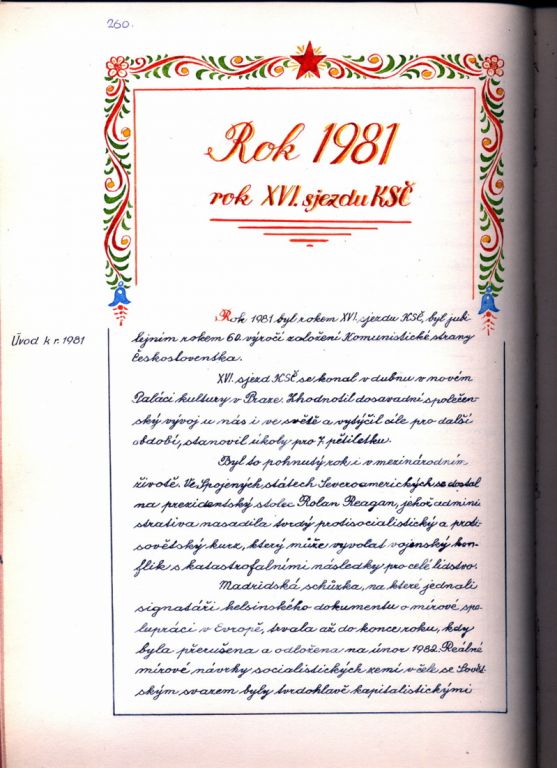 260.
Rok 1981
rok XVI. sjezdu KSČ
Úvod k r. 1981
Rok 1981 byl rokem XVI. sjezdu KSČ, byl jub-
lejním rokem 60. výročí založení Komunistické strany
Československa.
XVI. sjezd KSČ se konal v dubnu v novém
Paláci kultury v Praze. Zhodnotil dosavadní společen-
ský vývoj u nás i ve světě a vytýčil cíle pro další
období, stanovil úkoly pro 7. pětiletku.
Byl to pohnutý rok i v mezinárodním
životě. Ve Spojených státech Severoamerických se dostal
na prezidentský stolec Rolan Reagan, jehož admini
strativa nasadila tvrdý protisocialistický a proti-
sovětský kurz, který může vyvolat vojenský kon-
flik s katastrofálními následky pro celé lidstvo.
Madridská schůzka, na které jednali
signatáři helsinského dokumentu o mírové spo-
lupráci v Evropě, trvala až do konce roku, kdy
byla přerušena a odložena na únor 1982. Reálné
mírové návrky socialistických zemí v čele se Sovět-
ským svazem byly tvrdohlavě kapitalistickými